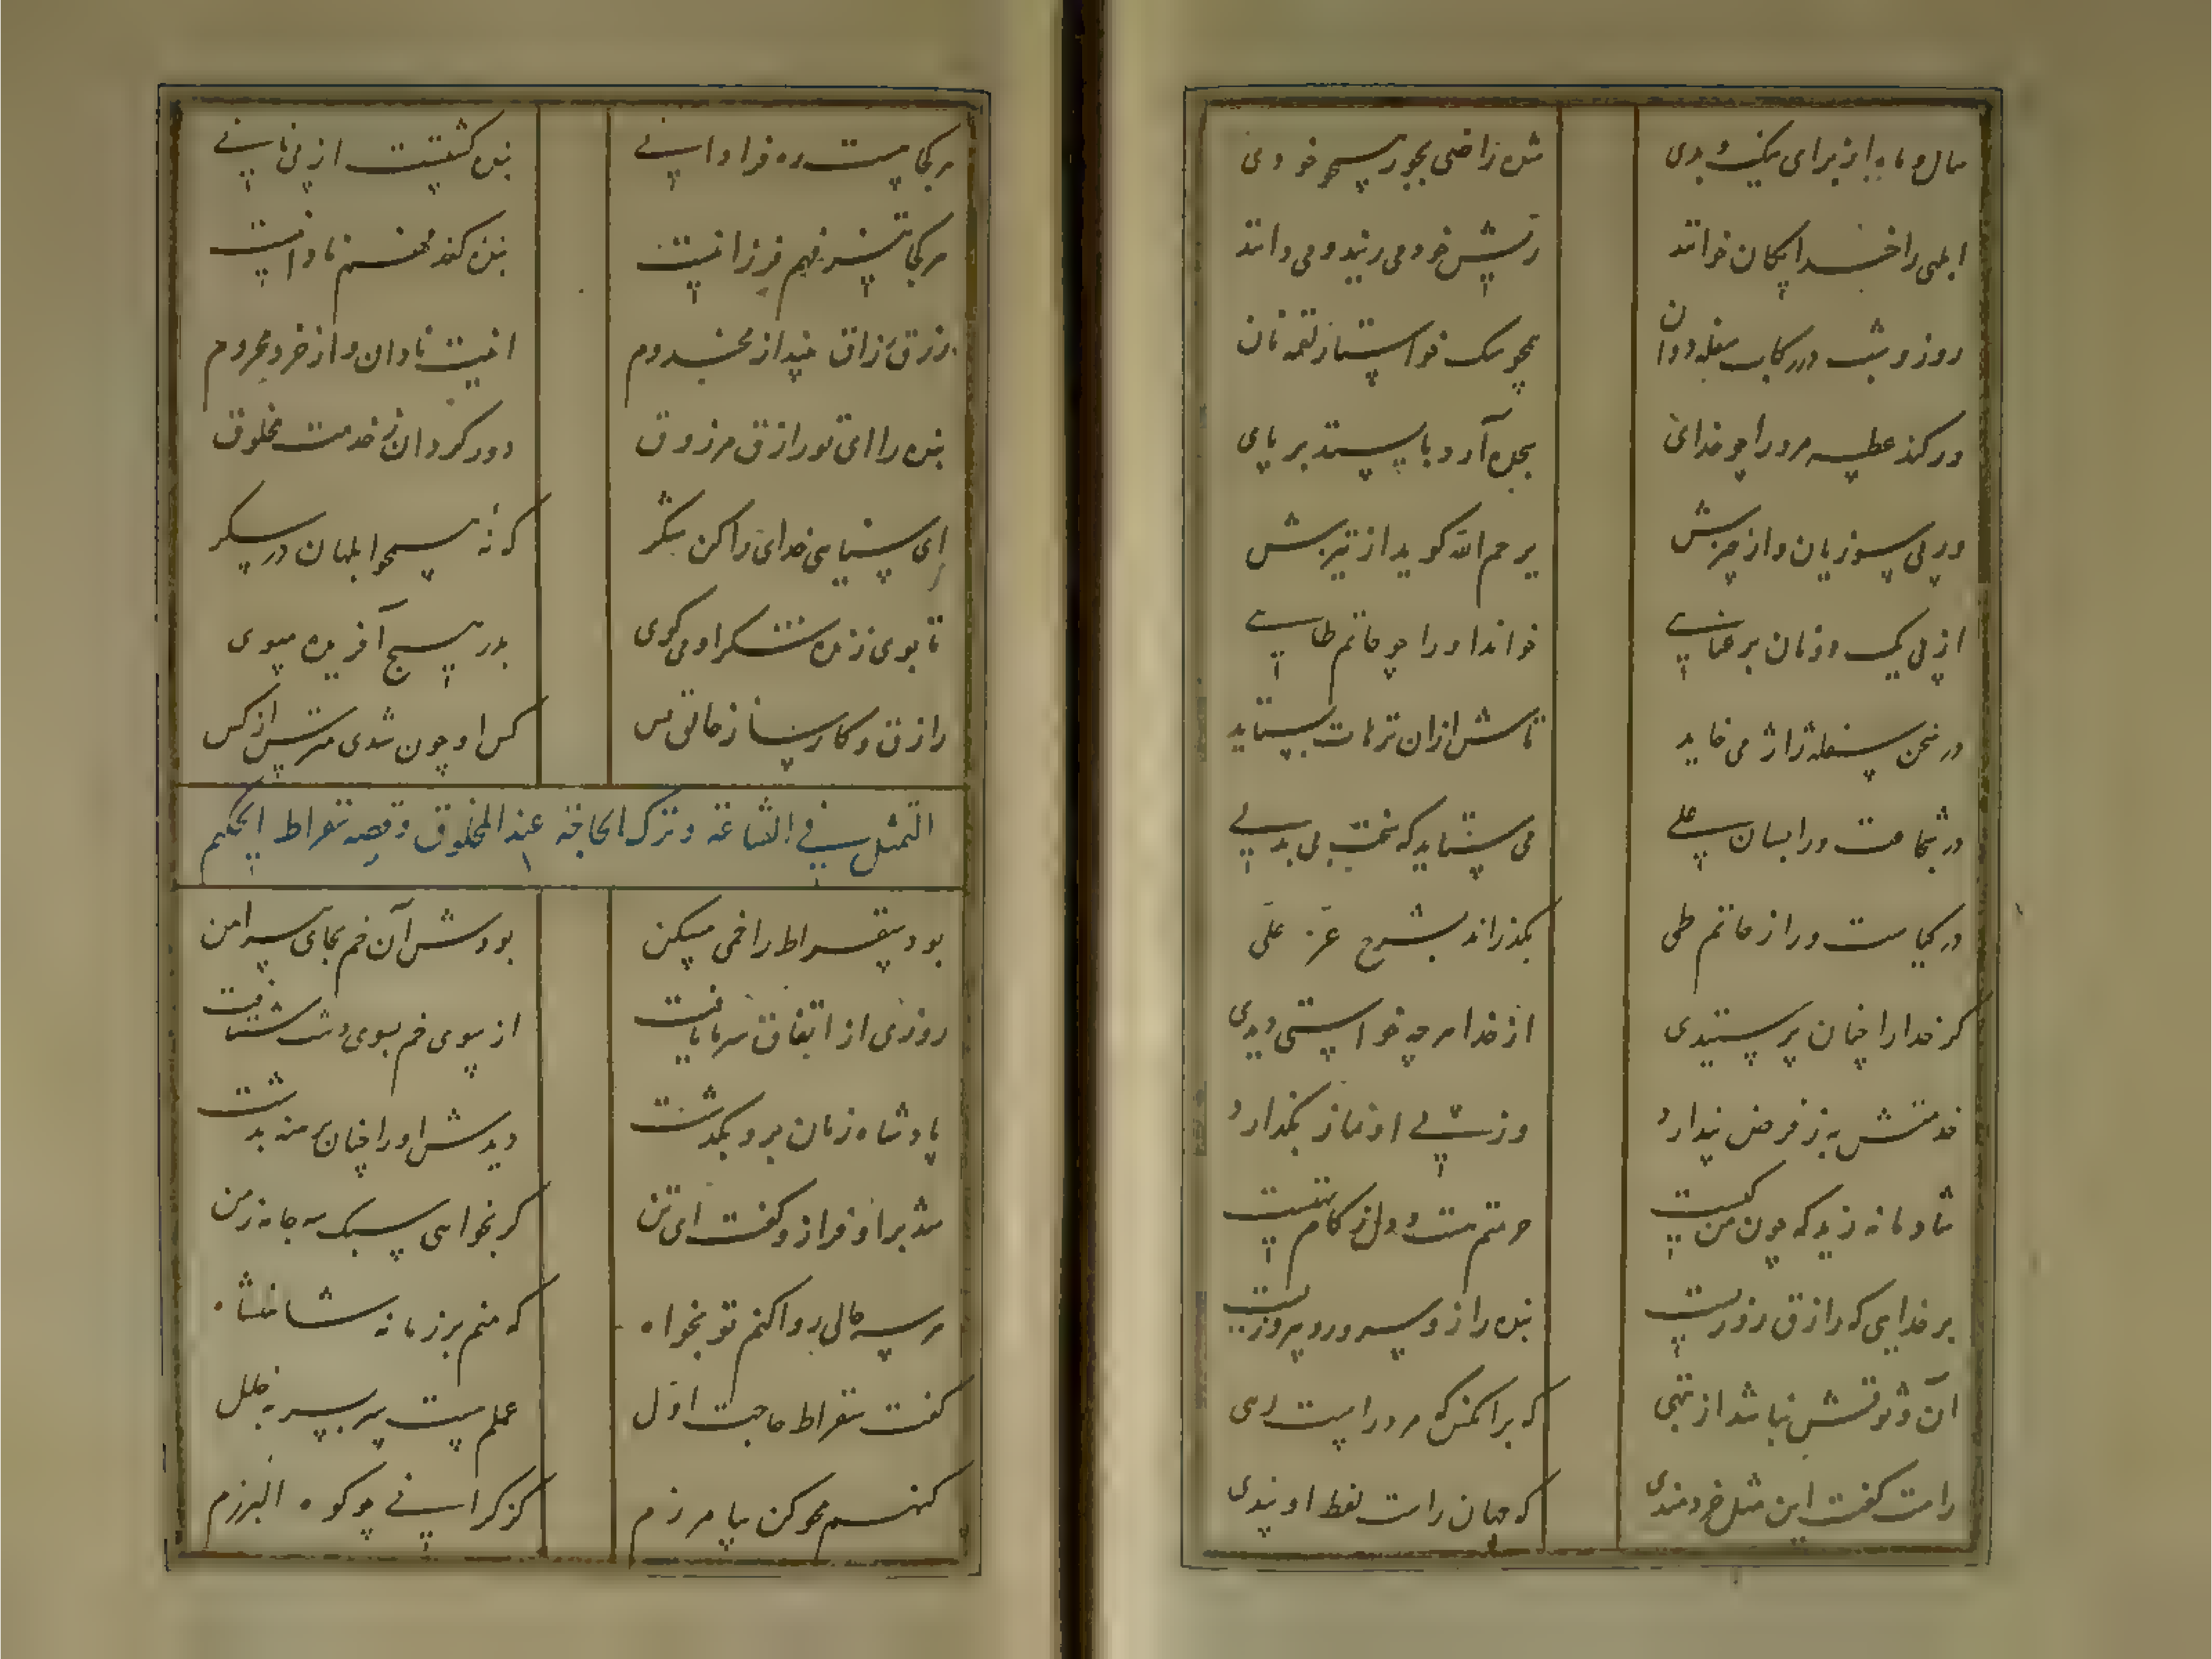 سال و ماه از برای نیک و بدی شده راضی بجور همچو خودی
ابلهی را خدایگان خوانند ریش خود می‌ریند و می‌دانند
روز و شب در رکاب سفله دوان همچو سگ خواستار لقمه نان
ور کند عطسه مرورا چو خدای بجهد آرد و بایستد بر پای
ور پی سوزیان و از چربش یرحم الله گوید از تیزش
از پی یک دو نان بر عنایی خواند او را چو حاتم طایی
در سخن سفله ژاژ می خاید تاش از ان ترهات بستاید
در شجاعت ورا بسان علی می ستاید که سخت بی بدلی
در کیاست ورا ز حاتم طی بگذراند بشرح عز علی
گر خدا را چنان پرستیدی از خدا هر چه خواستی دیدی
خدمتش به ز فرض پندارد وز پی او نماز بگذارد
شادمانه زید که چون من کیست حرمتم هست و دل ز کام تهیست
بر خدایی که رازق روزیست بنده را زو سرور و پیروزیست
آن وثوقش نباشد از تنهی که بر آنکس که مرورا هست رهی
راست گفت این مثل خردمندی که جهان راست لفظ او پندی
هر کجا هست ده فراوانی بنده گشتست از پی نانی
هر کجا تیز فهم فرزانیست بنده کند فهم نادانیست
رزق رزاق بیند از مخدوم اینت نادان و از خرد محروم
بنده را ای تو رازق مرزوق دور گردان ز خدمت مخلوق
ای سنایی خدای را کن شکر که نه همچو ابلهان در سکر
تا بوی زنده شکر او می گوی بدر هیچ آفریده مپوی
رازق و کارساز خالق بس کس او چون شدی مترس از کس
التمثل فی القناعة و ترک الحاجة عند المخلوق و قصه سقراط الحکیم
بود سقراط را خمی مسکن بودش آن خم بجای پیرامن
روزی از اتفاق سرما یافت از سوی خم بسوی دشت شتافت
پادشاه زمان برو بگذشت دیدش او را چنان برهنه بدشت
شد بر او فراز و گفت ای تن گر بخواهی سبک سه جامه ز من
هر سه حالی روا کنم تو بخواه که منم بر زمانه شاهنشاه
گفت سقراط حاجت اول عملم هست سر بسر بخلل
گنهم محو کن بیامرزم کز گرانی چو کوه البرزم